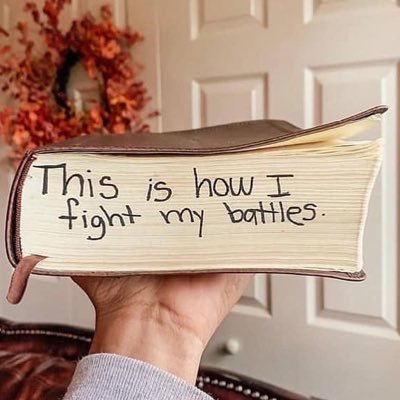 This is how I
fight my battles.